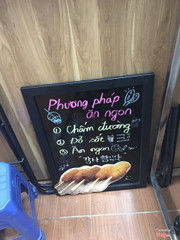 Phương pháp
ăn ngon
① Chấm đường
② Đổ sốt
③ Ăn ngon
감사합니다